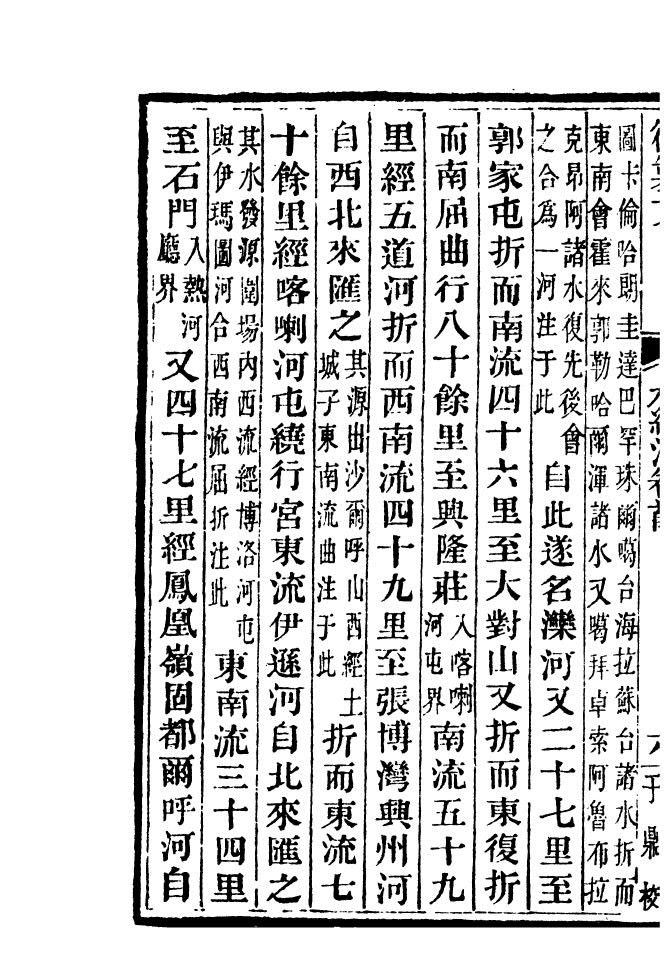 圖卡倫哈朗圭達巴罕珠爾噶台海拉蘇台諸水折而
東南會霍來郭勒哈爾渾諸水又噶拜卓索阿魯布拉
克昂阿諸水復先後會
之合爲一河注于此
自此遂名灤河又二十七里至
郭家屯折而南流四十六里至大對山又折而東復折
而南屈曲行八十餘里至興隆莊
入喀喇
河屯界
南流五十九
里經五道河折而西南流四十九里至張博灣興州河
自西北來匯之
其源出沙爾呼山西經土
城子東南流曲注于此
折而東流七
十餘里經喀喇河屯繞行宮東流伊遜河自北來匯之
其水發源圍場內西流經博洛河屯
與伊瑪圖河合西南流屈折注此
東南流三十四里
至石門
入熱河
廳界
又四十七里經鳳凰嶺固都爾呼河自
六
于鼎校